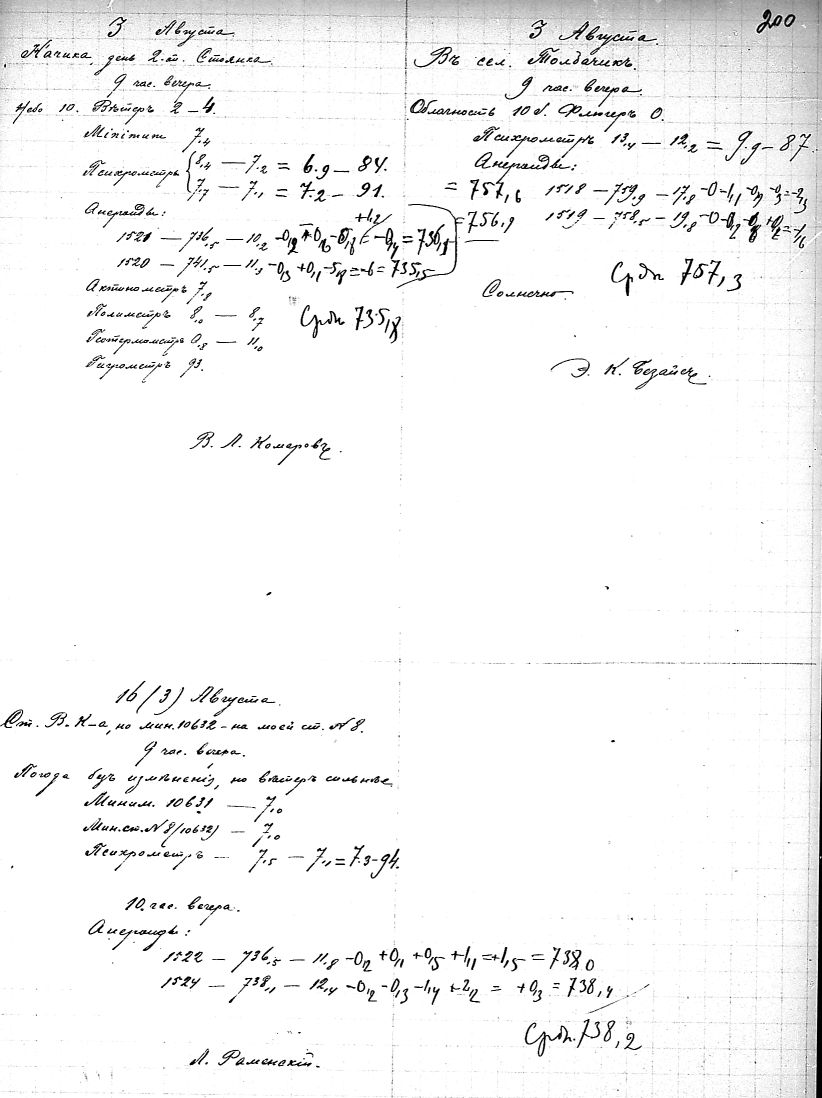 200
3 Августа
Начика, день 2-й. Стоянка.
9 час. вечера.
Небо 10. Вѣтеръ 2–4.
Minimum 7,4
Психрометръ 8,4 — 7,2 = 6.9 — 84.
7,7 — 7,1 = 7.2 — 91.
Анероиды:
+1,2
1521 — 736,5 — 10,2 -0,2
1520 — 741,5 — 11,3 -0,3 +0,1 -5,8 = -6 = 735,5
Актинометръ 7,8
Полиметръ 8,0 — 8,7
Геотермометръ 0,8 — 11,0
Гигрометръ 93.
Средн. 735,8
В. Л. Комаровъ.
3 Августа.
Въ сел. Толбачикъ.
9 час. вечера.
Облачность 10 б. Флюгеръ 0.
Психрометръ 13,4 — 12,2 = 9.9 — 87
Анероиды:
= 757,6 1518 — 759,9 — 17,8 -0 -1,1
= 756,9 1519 — 758,5 — 19,8 -0
Средн. 757,3
Солнечно.
Э. К. Безайсъ.
16 (3) Августа.
Ст. В. К-а, но мин. 10632 - на моей ст. N 8.
9 час. вечера.
Погода безъ измѣненія, но вѣтеръ сильнѣе
Миним. 10631 — 7,0
Мин. ст. N 8 (10632) — 7,0
Психрометръ — 7,5 — 7,1 = 7.3 - 94.
10 час. вечера.
Анероиды:
1522 — 736,5 — 11,8 -0,2 +0,1 +0,5 +1,1 = +1,5 = 738,0
1524 — 738,1 — 12,4 -0,2 -0,3 -1,4 +2,2 = +0,3 = 738,4
Средн. 738,2
Л. Раменскій.